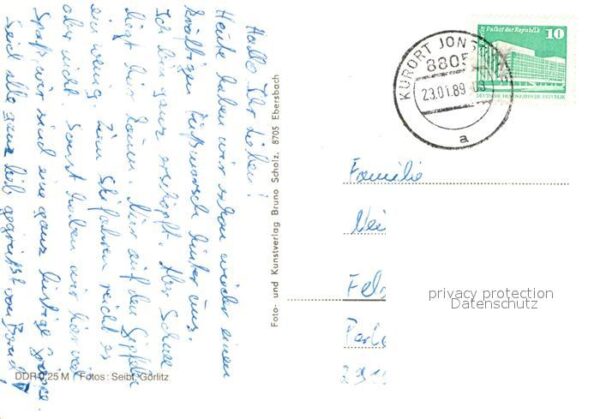 Hallo Ihr Lieben!
Heute haben wir schon wieder einen
kräftigen Fußmarsch hinter uns.
Ich bin ganz erschöpft. Aber Schnee
liegt hier kaum. Nur auf den Gipfeln
ein wenig. Zum Skifahren reicht es
aber nicht. Sonst haben wir hier viel
Spaß, wir sind eine ganz lustige Gruppe
Seid alle ganz lieb gegrüßt von
DDR 0,25 M Fotos: Seibt, Görlitz
Foto- und Kunstverlag Bruno Scholz, 8705 Ebersbach
KURORT JONSDORF
8805
23.01.89
a
Palast der Republik 10
DEUTSCHE DEMOKRATISCHE REPUBLIK
Familie
Nei
Fels
Parl
privacy protection
Datenschutz